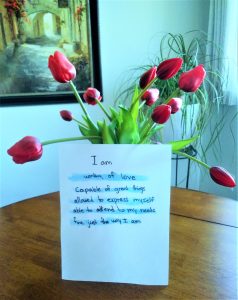 I am
worthy of love
Capable of great things
allowed to express myself
able to attend to my needs
fine just the way I am